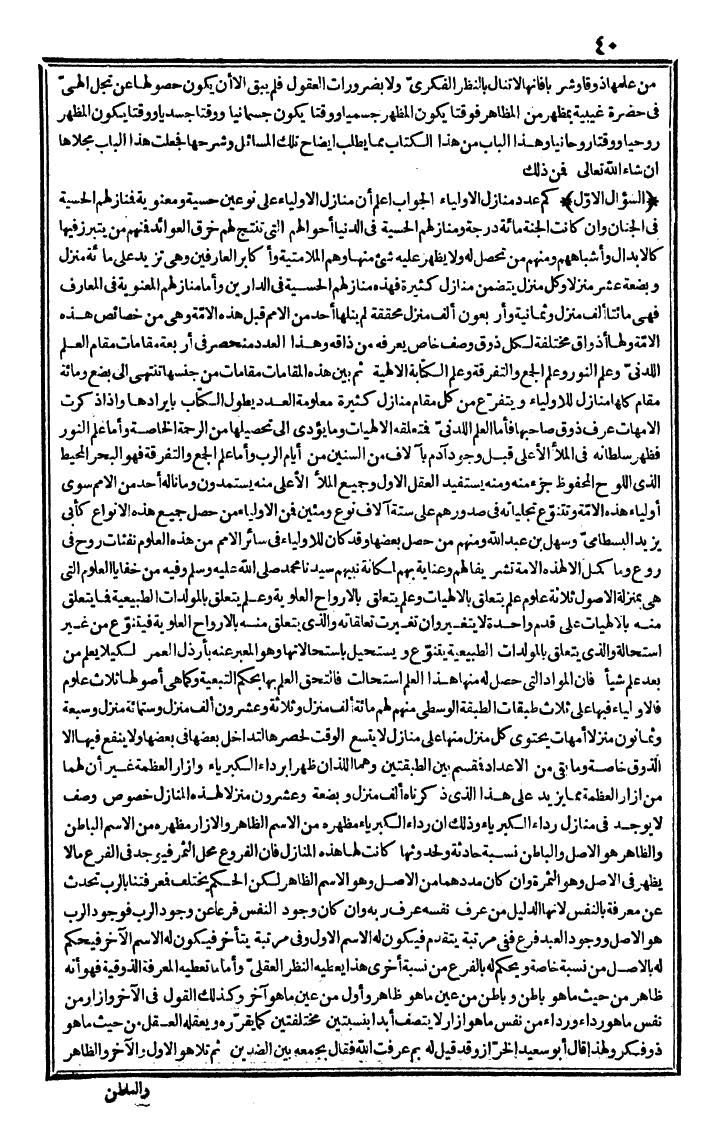 ٤٠
من علمها ذوقا وشربا فانها لا تنال بالنظر الفكرىّ ولا بضرورات العقول فلم يبق الا أن يكون حصولها عن تجل الهىّ
فى حضرة غيبية بمظهر من المظاهر فوقتا يكون المظهر جسميا ووقتا يكون جسمانيا ووقتا جسديا ووقتا يكون المظهر
روحيا ووقتا روحانيا وهذا الباب من هذا الكتاب مما يطلب ايضاح تلك المسائل وشرحها فجعلت هذا الباب مجلاها
ان شاء الله تعالى فمن ذلك
﴿السؤال الاوّل﴾ كم عدد منازل الاولياء الجواب اعلم أن منازل الاولياء على نوعين حسية ومعنوية فمنازلهم الحسية
فى الجنان وان كانت الجنة مائة درجة ومنازلهم الحسية فى الدنيا أحوالهم التى تنتج لهم خرق العوائد فمنهم من يتبرز فيها
كالابدال وأشباههم ومنهم من تحصل له ولا يظهر عليه شئ منها وهم الملامتية وأكابر العارفين وهى تزيد على مائة منزل
وبضعة عشر منزلا وكل منزل يتضمن منازل كثيرة فهذه منازلهم الحسية فى الدارين وأما منازلهم المعنوية فى المعارف
فهى مائتا ألف منزل وثمانية وأربعون ألف منزل محققة لم ينلها أحد من الامم قبل هذه الامّة وهى من خصائص هذه
الامّة ولها أذواق مختلفة لكل ذوق وصف خاص يعرفه من ذاقه وهذا العدد منحصر فى أربعة مقامات مقام العلم
اللدنىّ وعلم النور وعلم الجمع والتفرقة وعلم الكتابة الالهية ثم بين هذه المقامات مقامات من جنسها تنتهى الى بضع ومائة
مقام كلها منازل للاولياء ويتفرّع من كل مقام منازل كثيرة معلومة العدد يطول الكتاب بايرادها واذا ذكرت
الامهات عرف ذوق صاحبها فأما العلم اللدنىّ فمتعلقه الالهيات وما يؤدى الى تحصيلها من الرحمة الخاصة وأما علم النور
فظهر سلطانه فى الملأ الأعلى قبل وجود آدم بآلاف من السنين من أيام الرب وأما علم الجمع والتفرقة فهو البحر المحيط
الذى اللوح المحفوظ جزء منه ومنه يستفيد العقل الاول وجميع الملأ الأعلى منه يستمدون وما ناله أحد من الامم سوى
أولياء هذه الامّة وتتنوّع تجلياته فى صدورهم على ستة آلاف نوع ومئين فمن الاولياء من حصل جميع هذه الانواع كأبى
يزيد البسطامىّ وسهل بن عبد الله ومنهم من حصل بعضها وقد كان للاولياء فى سائر الامم من هذه العلوم نفثات روح فى
روع وما كمل الا لهذه الامة تشريفا لهم وعناية بهم لمكانة نبيهم سيدنا محمد صلى الله عليه وسلم وفيه من خفايا العلوم التى
هى بمنزلة الاصول ثلاثة علوم علم يتعلق بالالهيات وعلم يتعلق بالارواح العلوية وعلم يتعلق بالمولدات الطبيعية فما يتعلق
منه بالالهيات على قدم واحدة لا يتغير وان تغيرت تعلقاته والذى يتعلق منه بالارواح العلوية فيتنوّع من غير
استحالة والذى يتعلق بالمولدات الطبيعية يتنوّع ويستحيل باستحالاتها وهو المعبر عنه بأرذل العمر لكيلا يعلم من
بعد علم شيأ فان المواد التى حصل له منها هذا العلم استحالت فالتحق العلم بها بحكم التبعية وكما هى أصولها ثلاث علوم
فالاولياء فيها على ثلاث طبقات الطبقة الوسطى منهم لهم مائة ألف منزل وثلاثة وعشرون ألف منزل وستمائة منزل وسبعة
وثمانون منزلا أمهات يحتوى كل منزل منها على منازل لا يتسع الوقت لحصرها لتداخل بعضها فى بعضها ولا ينفع فيها الا
الذوق خاصة وما بقى من الاعداد فمقسم بين الطبقتين وهما اللذان ظهرا برداء الكبرياء وازار العظمة غير أن لهما
من ازار العظمة مما يزيد على هذا الذى ذكرناه ألف منزل وبضعة وعشرون منزلا لهذه المنازل خصوص وصف
لا يوجد فى منازل رداء الكبرياء وذلك ان رداء الكبرياء مظهره من الاسم الظاهر والازار مظهره من الاسم الباطن
والظاهر هو الاصل والباطن نسبة حادثة ولحدوثها كانت لها هذه المنازل فان الفروع محل الثمر فيوجد فى الفرع مالا
يظهر فى الاصل وهو الثمرة وان كان مددهما من الاصل وهو الاسم الظاهر لكن الحكم يختلف فمعرفتنا بالرب تحدث
عن معرفة بالنفس لانها الدليل من عرف نفسه عرف ربه وان كان وجود النفس فرعا عن وجود الرب فوجود الرب
هو الاصل ووجود العبد فرع ففى مرتبة يتقدم فيكون له الاسم الاول وفى مرتبة يتأخر فيكون له الاسم الآخر فيحكم
له بالاصل من نسبة خاصة ويحكم له بالفرع من نسبة أخرى هذا يعطيه النظر العقلىّ وأما ما تعطيه المعرفة الذوقية فهو أنه
ظاهر من حيث ما هو باطن وباطن من عين ما هو ظاهر وأول من عين ما هو آخر وكذلك القول فى الآخر وازار من
نفس ما هو رداء ورداء من نفس ما هو ازار لا يتصف أبدا بنسبتين مختلفتين كما يقرّره ويعقله العقل من حيث ما هو
ذو فكر ولهذا قال أبو سعيد الخرّاز وقد قيل له بم عرفت الله فقال بجمعه بين الضدين ثم تلا هو الاول والآخر والظاهر
والباطن